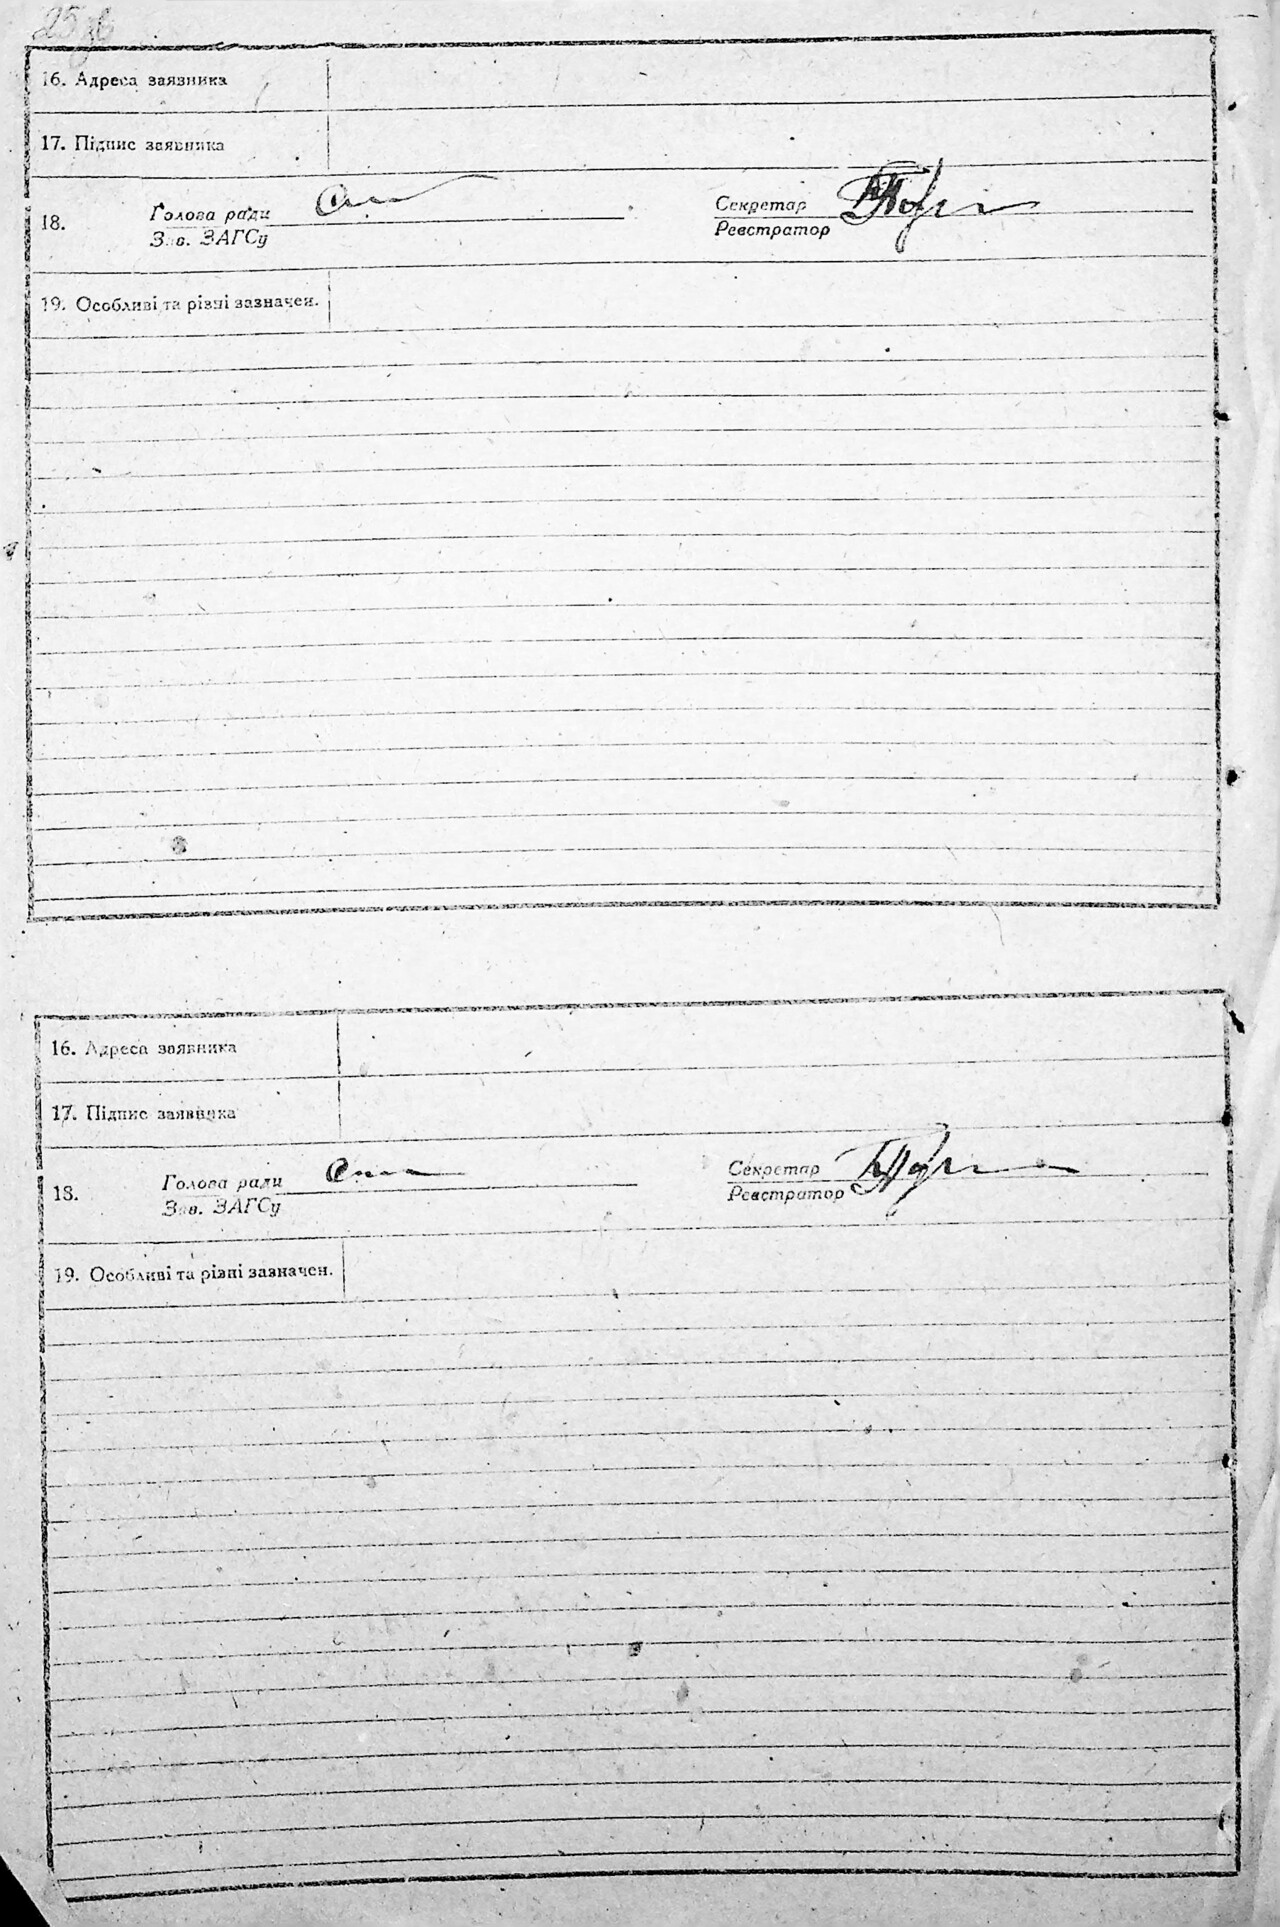 25зв
16. Адреса заявника
17. Підпис заявника
18. Голова ради Секретар
Зав. ЗАГСу Реєстратор
19. Особливі та різні зазначен.
16. Адреса заявника
17. Підпис заявника
18. Голова ради Секретар
Зав. ЗАГСу Реєстратор
19. Особливі та різні зазначен.